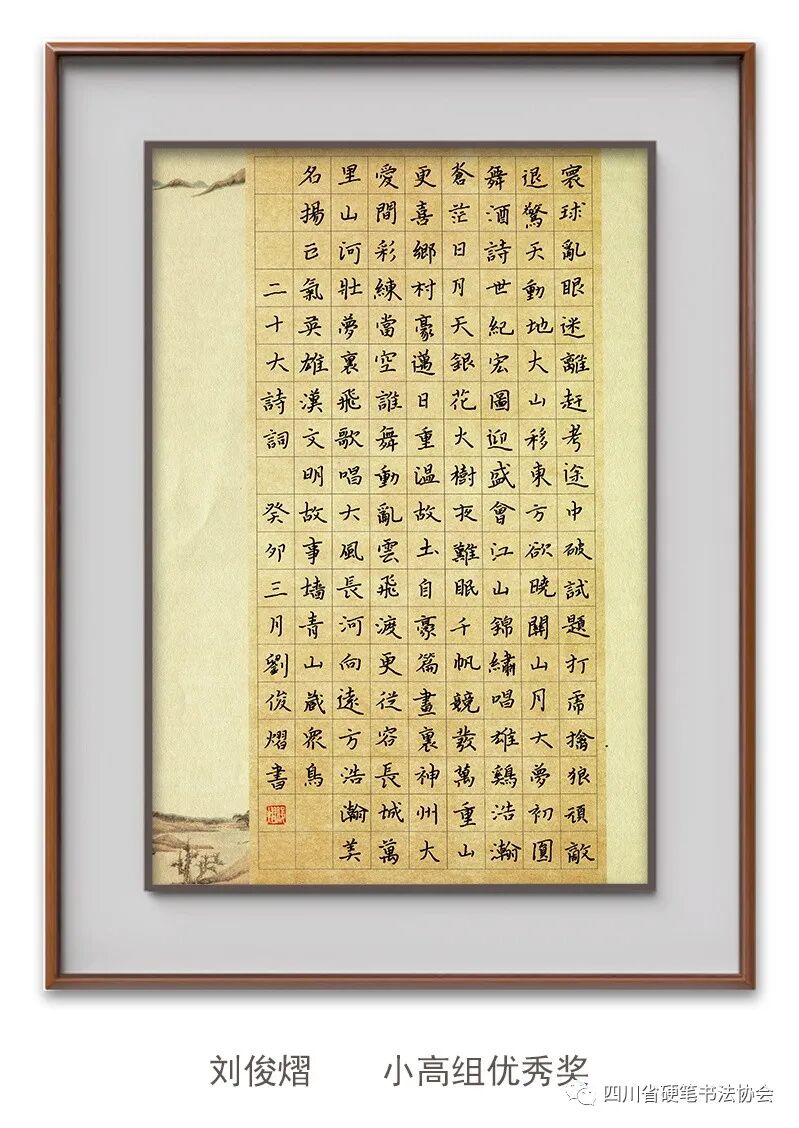 寰球亂眼迷離赶考途中破試題打虎擒狼頑敵
退驚天動地大山移東方欲曉關山月大夢初圓
舞酒詩世紀宏圖迎盛會江山錦繡唱雄鷄浩瀚
蒼茫日月天銀花火樹夜難眠千帆競發萬重山
更喜鄉村豪邁日重溫故土自豪篇畫裏神州大
愛間彩練當空誰舞動亂雲飛渡更從容長城萬
里山河壯夢裏飛歌唱大風長河向遠方浩瀚美
名揚正氣英雄漢文明故事墻青山歲眾鳥
二十大詩詞 癸卯三月劉俊熠書
刘俊熠 小高组优秀奖
四川省硬笔书法协会